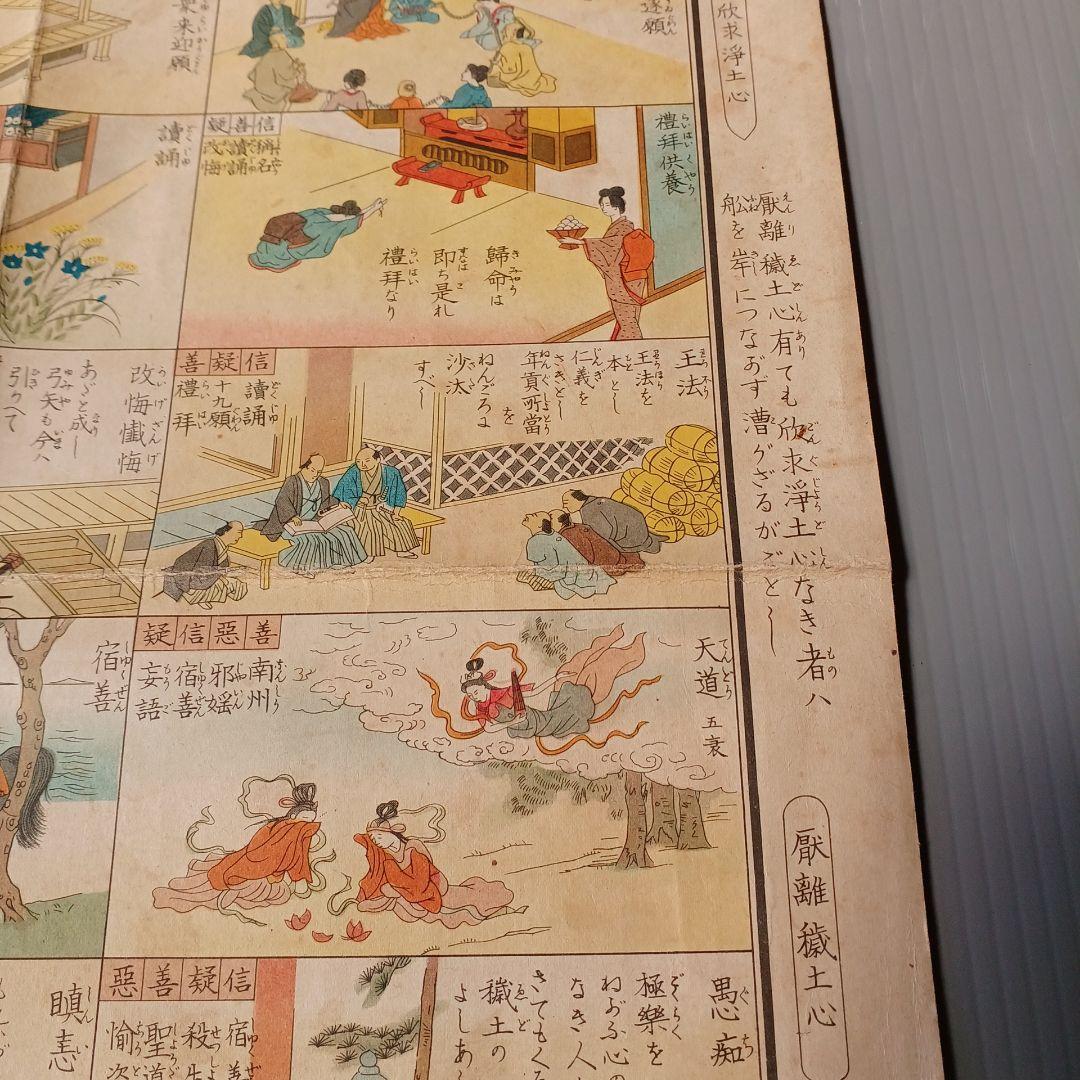 欣求淨土心
厭離穢土心有ても欣求淨土心なき者ハ
舩を岸につなぎ
漕がざるがごとし
厭離穢土心
逐願
来迎願
禮拜供養
歸命は
即ち是れ
禮拜なり
信善疑
稱名
讀誦
改悔
讀誦
王法
王法を
本とし
仁義を
さきとし
年貢所當
を
ねんごろに
沙汰
すべし
信疑善
讀誦
十九願
禮拜
改悔懺悔
あだと成し
弓矢も今ハ
引かへて
天道
五衰
善惡信疑
南州
邪婬
宿善
妄語
宿善
愚痴
極樂を
ねがふ心の
なき人
さてもくる
穢土の
よしあ
信疑善惡
宿善
殺生
聖道
愉次
瞋恚